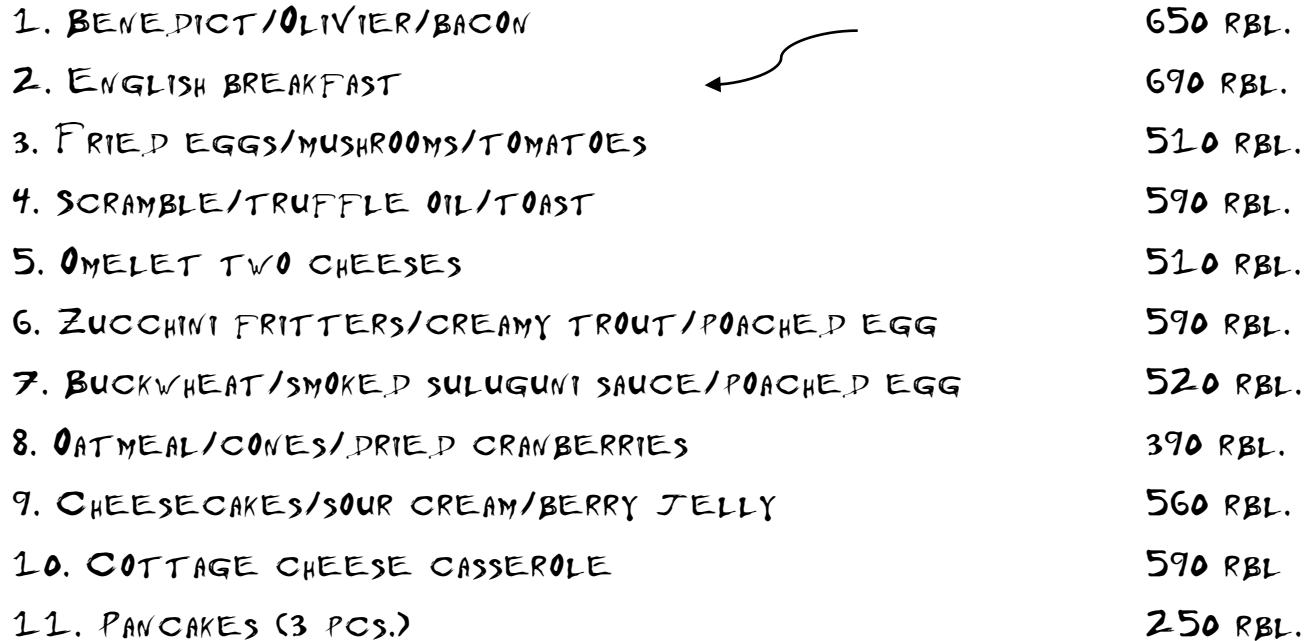 1. Benedict/Olivier/bacon 650 rbl.
2. English breakfast 690 rbl.
3. Fried eggs/mushrooms/tomatoes 510 rbl.
4. Scramble/truffle oil/toast 590 rbl.
5. Omelet two cheeses 510 rbl.
6. Zucchini fritters/creamy trout/poached egg 590 rbl.
7. Buckwheat/smoked suluguni sauce/poached egg 520 rbl.
8. Oatmeal/cones/dried cranberries 390 rbl.
9. Cheesecakes/sour cream/berry jelly 560 rbl.
10. Cottage cheese casserole 590 rbl
11. Pancakes (3 pcs.) 250 rbl.